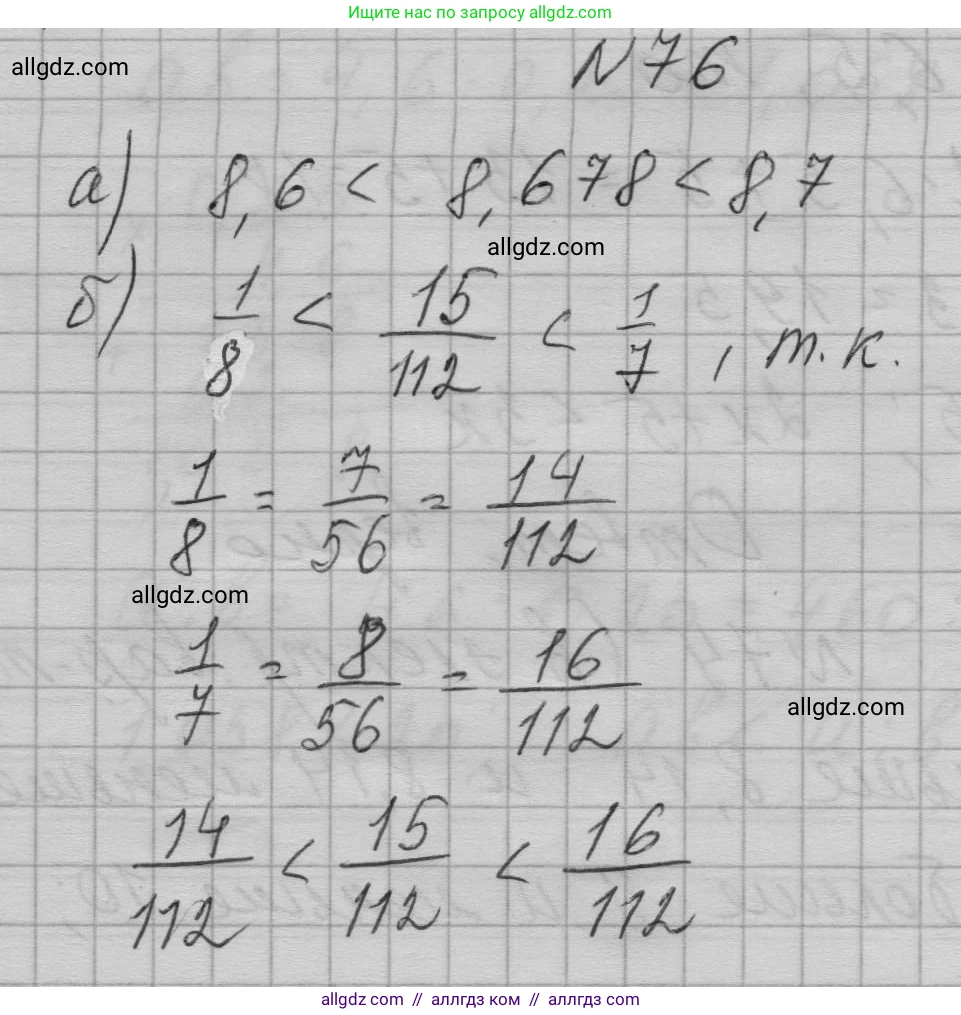 Ищите нас по запросу allgdz.com
allgdz.com
N 76
а) 8,6 < 8,678 < 8,7
allgdz.com
б) 1/8 < 15/112 < 1/7, т.к.
1/8 = 7/56 = 14/112
allgdz.com
1/7 = 8/56 = 16/112
allgdz.com
14/112 < 15/112 < 16/112
allgdz com // аллгдз ком // аллгдз com